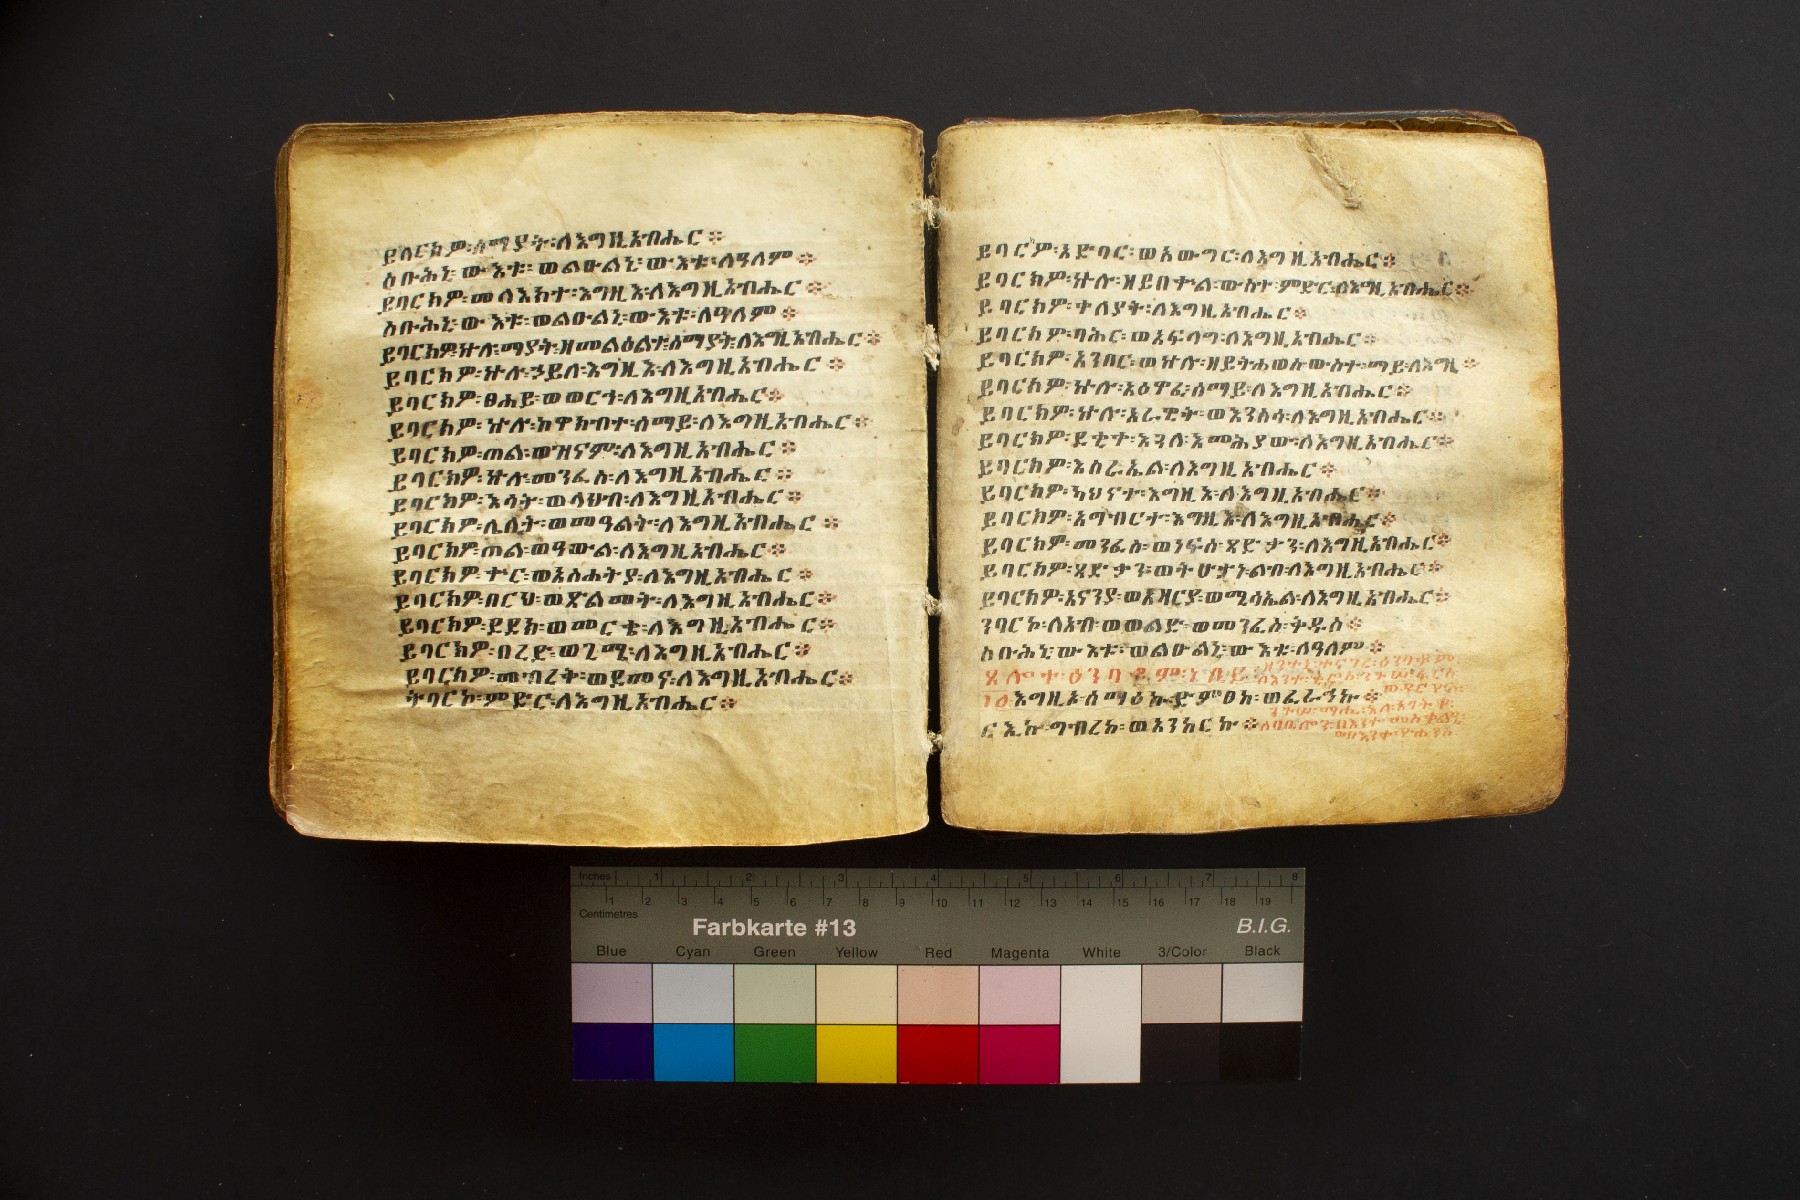 ይባርክዎ፡ሰማያት፡ለእግዚአብሔር፨
ስቡሕኒ፡ውእቱ፡ወልዑልኒ፡ውእቱ፡ለዓለም፨
ይባርክዎ፡መላእክተ፡እግዚእ፡ለእግዚአብሔር፨
ስቡሕኒ፡ውእቱ፡ወልዑልኒ፡ውእቱ፡ለዓለም፨
ይባርክዎ፡ኵሉ፡ማያት፡ዘመልዕልተ፡ሰማያት፡ለእግዚአብሔር፨
ይባርክዎ፡ኵሉ፡ኃይለ፡እግዚእ፡ለእግዚአብሔር፨
ይባርክዎ፡ፀሐይ፡ወወርኅ፡ለእግዚአብሔር፨
ይባርክዎ፡ኵሉ፡ከዋክብተ፡ሰማይ፡ለእግዚአብሔር፨
ይባርክዎ፡ጠል፡ወዝናም፡ለእግዚአብሔር፨
ይባርክዎ፡ኵሉ፡መንፈስ፡ለእግዚአብሔር፨
ይባርክዎ፡እሳት፡ወላህብ፡ለእግዚአብሔር፨
ይባርክዎ፡ሌሊት፡ወመዓልት፡ለእግዚአብሔር፨
ይባርክዎ፡ጠል፡ወዓውል፡ለእግዚአብሔር፨
ይባርክዎ፡ቍር፡ወአስሐትያ፡ለእግዚአብሔር፨
ይባርክዎ፡በርህ፡ወጽልመት፡ለእግዚአብሔር፨
ይባርክዎ፡ደደክ፡ወመርቄ፡ለእግዚአብሔር፨
ይባርክዎ፡በረድ፡ወጊሜ፡ለእግዚአብሔር፨
ይባርክዎ፡መብረቅ፡ወደመና፡ለእግዚአብሔር፨
ትባርኮ፡ምድር፡ለእግዚአብሔር፨
ይባርም፡አድባር፡ወአውግር፡ለእግዚአብሔር፨
ይባርክዎ፡ኵሉ፡ዘይበቍል፡ውስተ፡ምድር፡ለእግዚአብሔር፨
ይባርክዎ፡ቀላያት፡ለእግዚአብሔር፨
ይባርክዎ፡ባሕር፡ወአፍላግ፡ለእግዚአብሔር፨
ይባርክዎ፡አንበር፡ወኵሉ፡ዘይትሐወስ፡ውስተ፡ማይ፡ለእግዚ፨
ይባርክዎ፡ኵሉ፡አዕዋፈ፡ሰማይ፡ለእግዚአብሔር፨
ይባርክዎ፡ኵሉ፡አራዊት፡ወእንስሳ፡ለእግዚአብሔር፨
ይባርክዎ፡ደቂቀ፡እጓለ፡እመሕያው፡ለእግዚአብሔር፨
ይባርክዎ፡እስራኤል፡ለእግዚአብሔር፨
ይባርክዎ፡ካህናተ፡እግዚእ፡ለእግዚአብሔር፨
ይባርክዎ፡አግብርተ፡እግዚእ፡ለእግዚአብሔር፨
ይባርክዎ፡መንፈስ፡ወነፍሰ፡ጻድቃን፡ለእግዚአብሔር፨
ይባርክዎ፡ጻድቃን፡ወትሁታነ፡ልብ፡ለእግዚአብሔር፨
ይባርክዎ፡አናንያ፡ወአዛርያ፡ወሚሳኤል፡ለእግዚአብሔር፨
ንባርኮ፡ለአብ፡ወወልድ፡ወመንፈስ፡ቅዱስ፨
ስቡሕኒ፡ውእቱ፡ወልዑልኒ፡ውእቱ፡ለዓለም፨
ጸሎተ፡ዕንባቆም፡ነቢይ፡
እግዚኦ፡ሰማዕኩ፡ድምፀከ፡ወፈራህኩ፨
ርኢኩ፡ግብረከ፡ወአንከርኩ፨